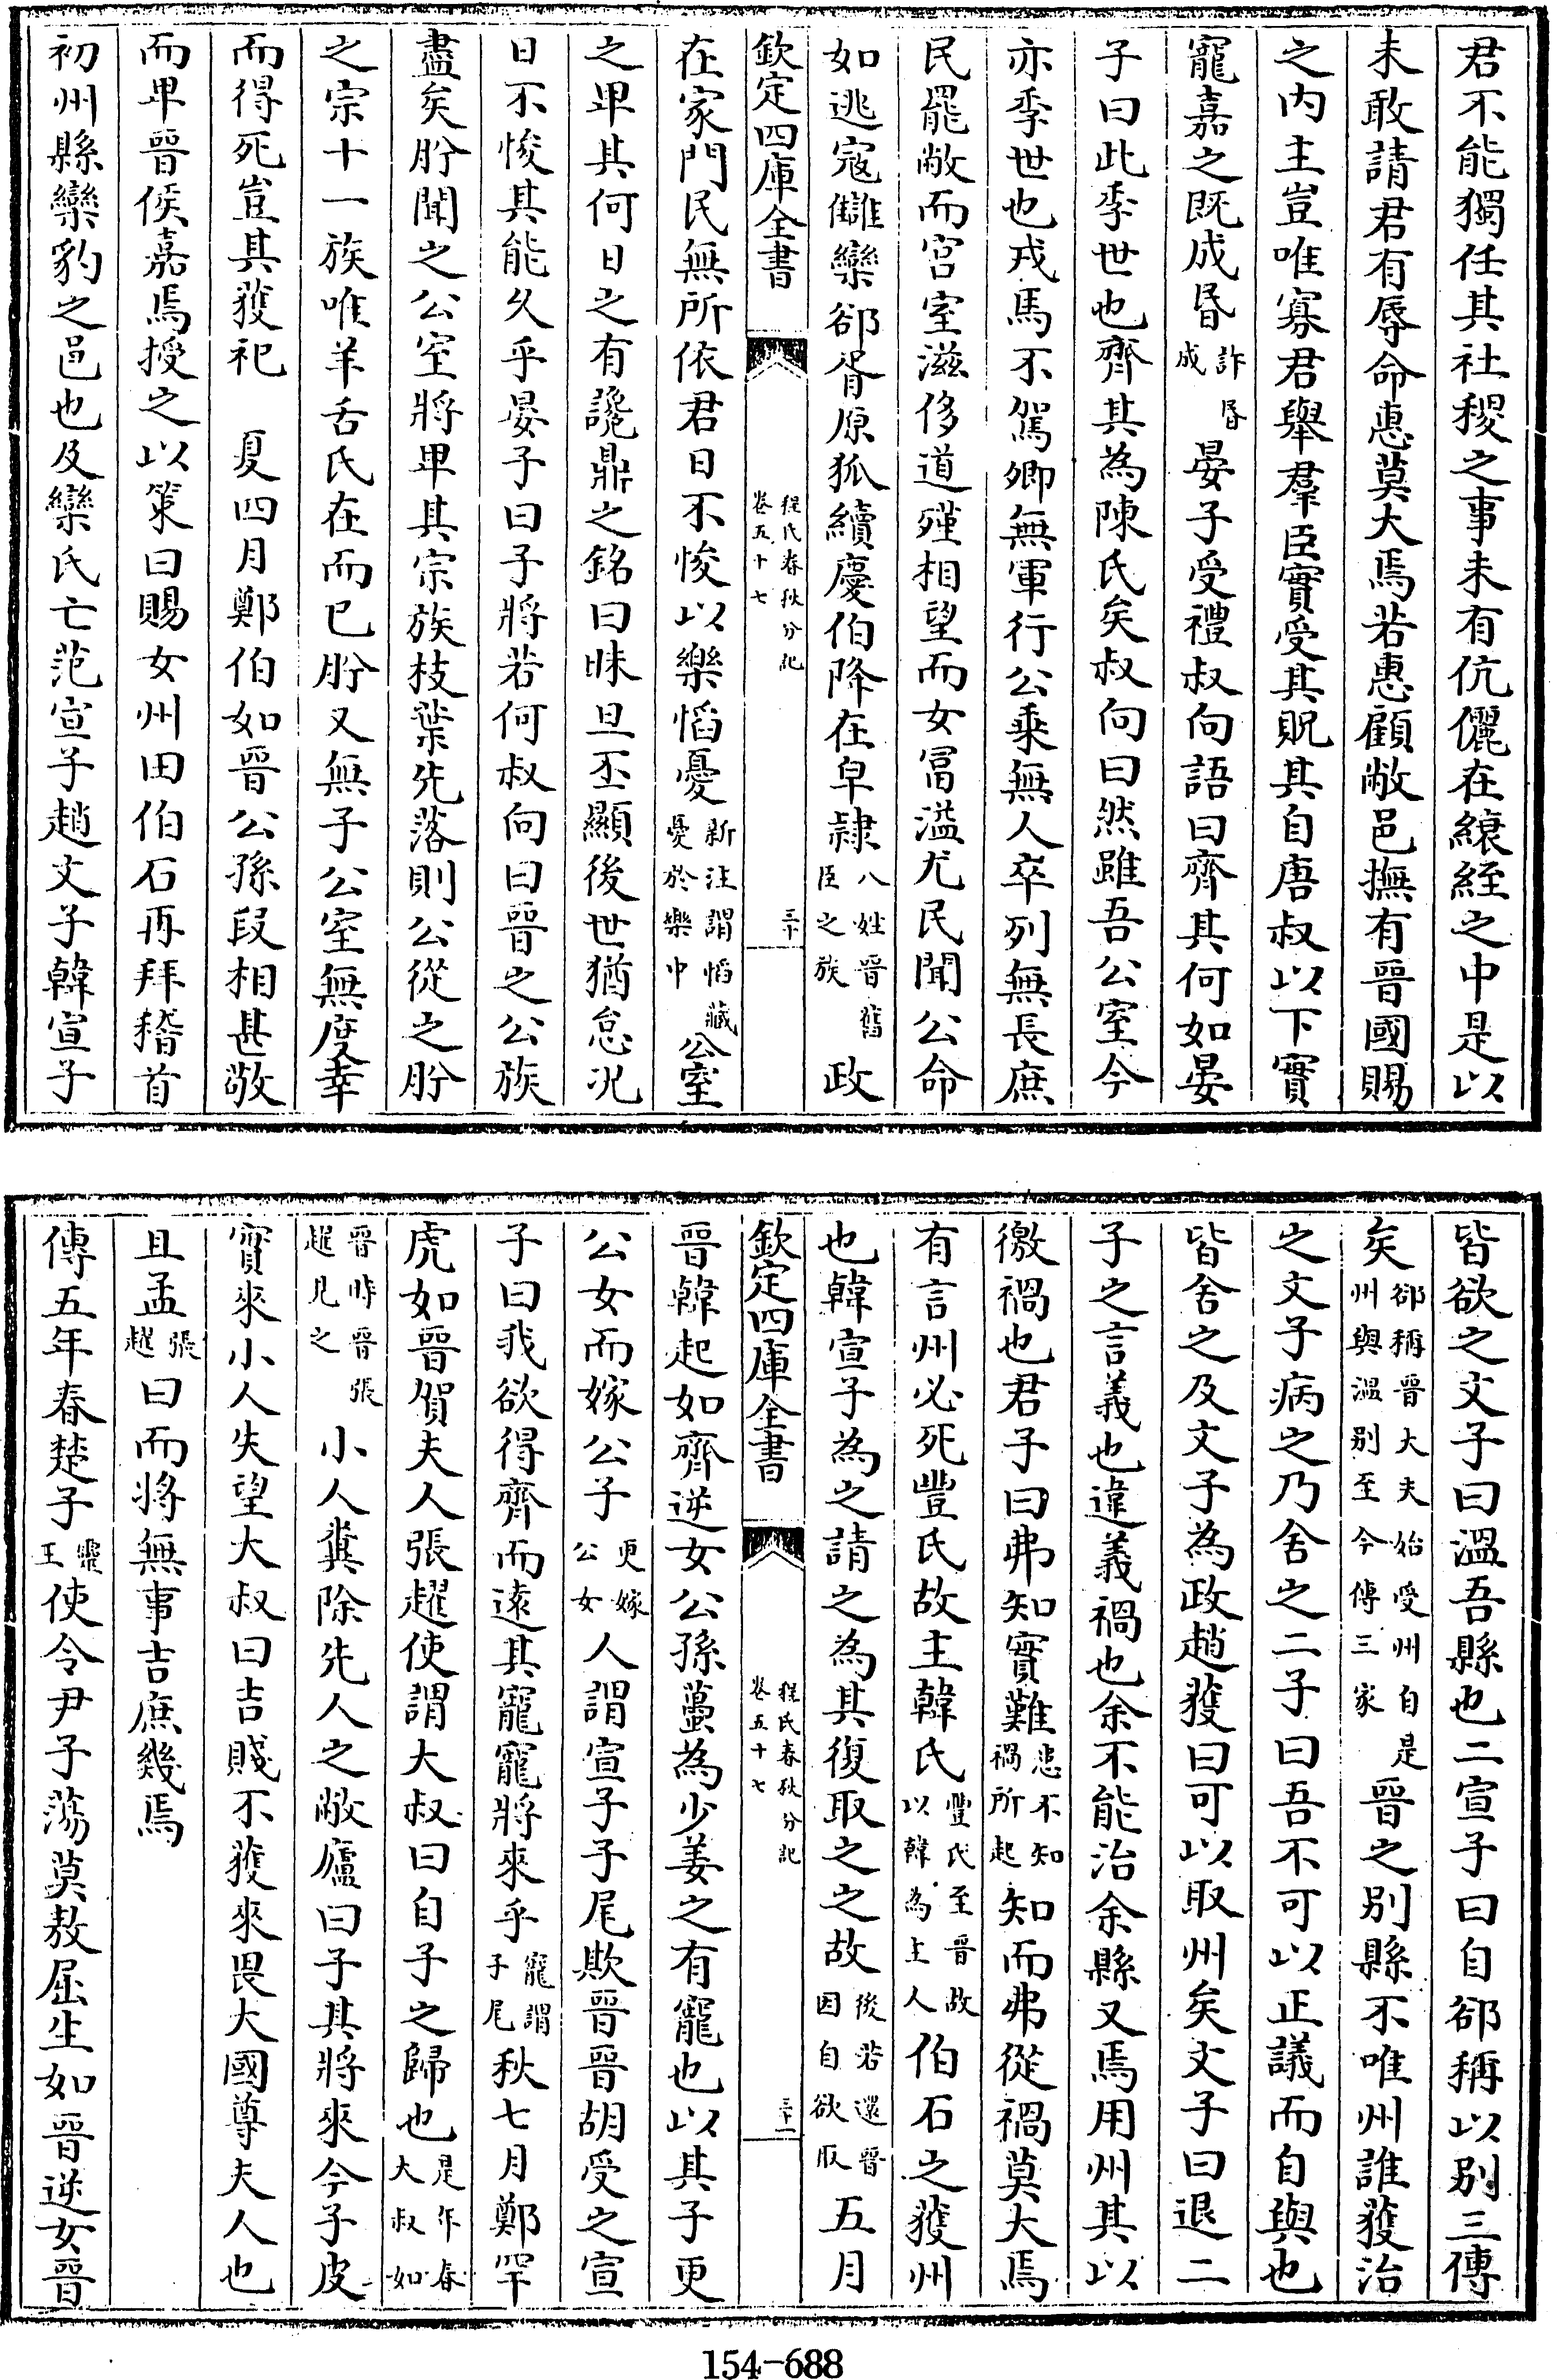 君不能獨任其社稷之事未有伉儷在縗絰之中是以
未敢請君有辱命惠莫大焉若惠顧敝邑撫有晉國賜
之内主豈唯寡君舉羣臣實受其貺其自唐叔以下實
寵嘉之既成昏許昏成晏子受禮叔向語曰齊其何如晏
子曰此季世也齊其為陳氏矣叔向曰然雖吾公室今
亦季世也戎馬不駕卿無軍行公乘無人卒列無長庶
民罷敝而宮室滋侈道殣相望而女冨溢尤民聞公命
如逃寇讎欒郤胥原狐續慶伯降在皁隷八姓晉舊臣之族政
欽定四庫全書
程氏春秋分記
卷五十七
三十
在家門民無所依君日不悛以樂慆憂新注謂慆藏憂於樂中公室
之卑其何日之有讒鼎之銘曰昧旦丕顯後世猶怠况
日不悛其能久乎晏子曰子將若何叔向曰晉之公族
盡矣肸聞之公室將卑其宗族枝葉先落則公從之肸
之宗十一族唯羊舌氏在而已肸又無子公室無度幸
而得死豈其獲祀　夏四月鄭伯如晉公孫段相甚敬
而卑晉侯嘉焉授之以策曰賜女州田伯石再拜稽首
初州縣欒豹之邑也及欒氏亡范宣子趙文子韓宣子
皆欲之文子曰溫吾縣也二宣子曰自郤稱以别三傳
矣郤稱晉大夫始受州自是州與溫别至今傳三家晉之别縣不唯州誰獲治
之文子病之乃舍之二子曰吾不可以正議而自與也
皆舍之及文子為政趙獲曰可以取州矣文子曰退二
子之言義也違義禍也余不能治余縣又焉用州其以
徼禍也君子曰弗知實難患不知禍所起知而弗從禍莫大焉
有言州必死豐氏故主韓氏豐氏至晉故以韓為主人伯石之獲州
也韓宣子為之請之為其復取之之故後若還晉因自欲取五月
欽定四庫全書
程氏春秋分記
卷五十七
三十一
晉韓起如齊逆女公孫蠆為少姜之有寵也以其子更
公女而嫁公子更嫁公女人謂宣子子尾欺晉晉胡受之宣
子曰我欲得齊而遠其寵寵將來乎寵謂子尾秋七月鄭罕
虎如晉賀夫人張趯使謂大叔曰自子之歸也是年春大叔如
晉時晉張趯見之小人糞除先人之敝廬曰子其將來今子皮
實來小人失望大叔曰吉賤不獲來畏大國尊夫人也
且孟張趯曰而將無事吉庶幾焉
傳五年春楚子靈王使令尹子蕩莫敖屈生如晉逆女晉
154-688